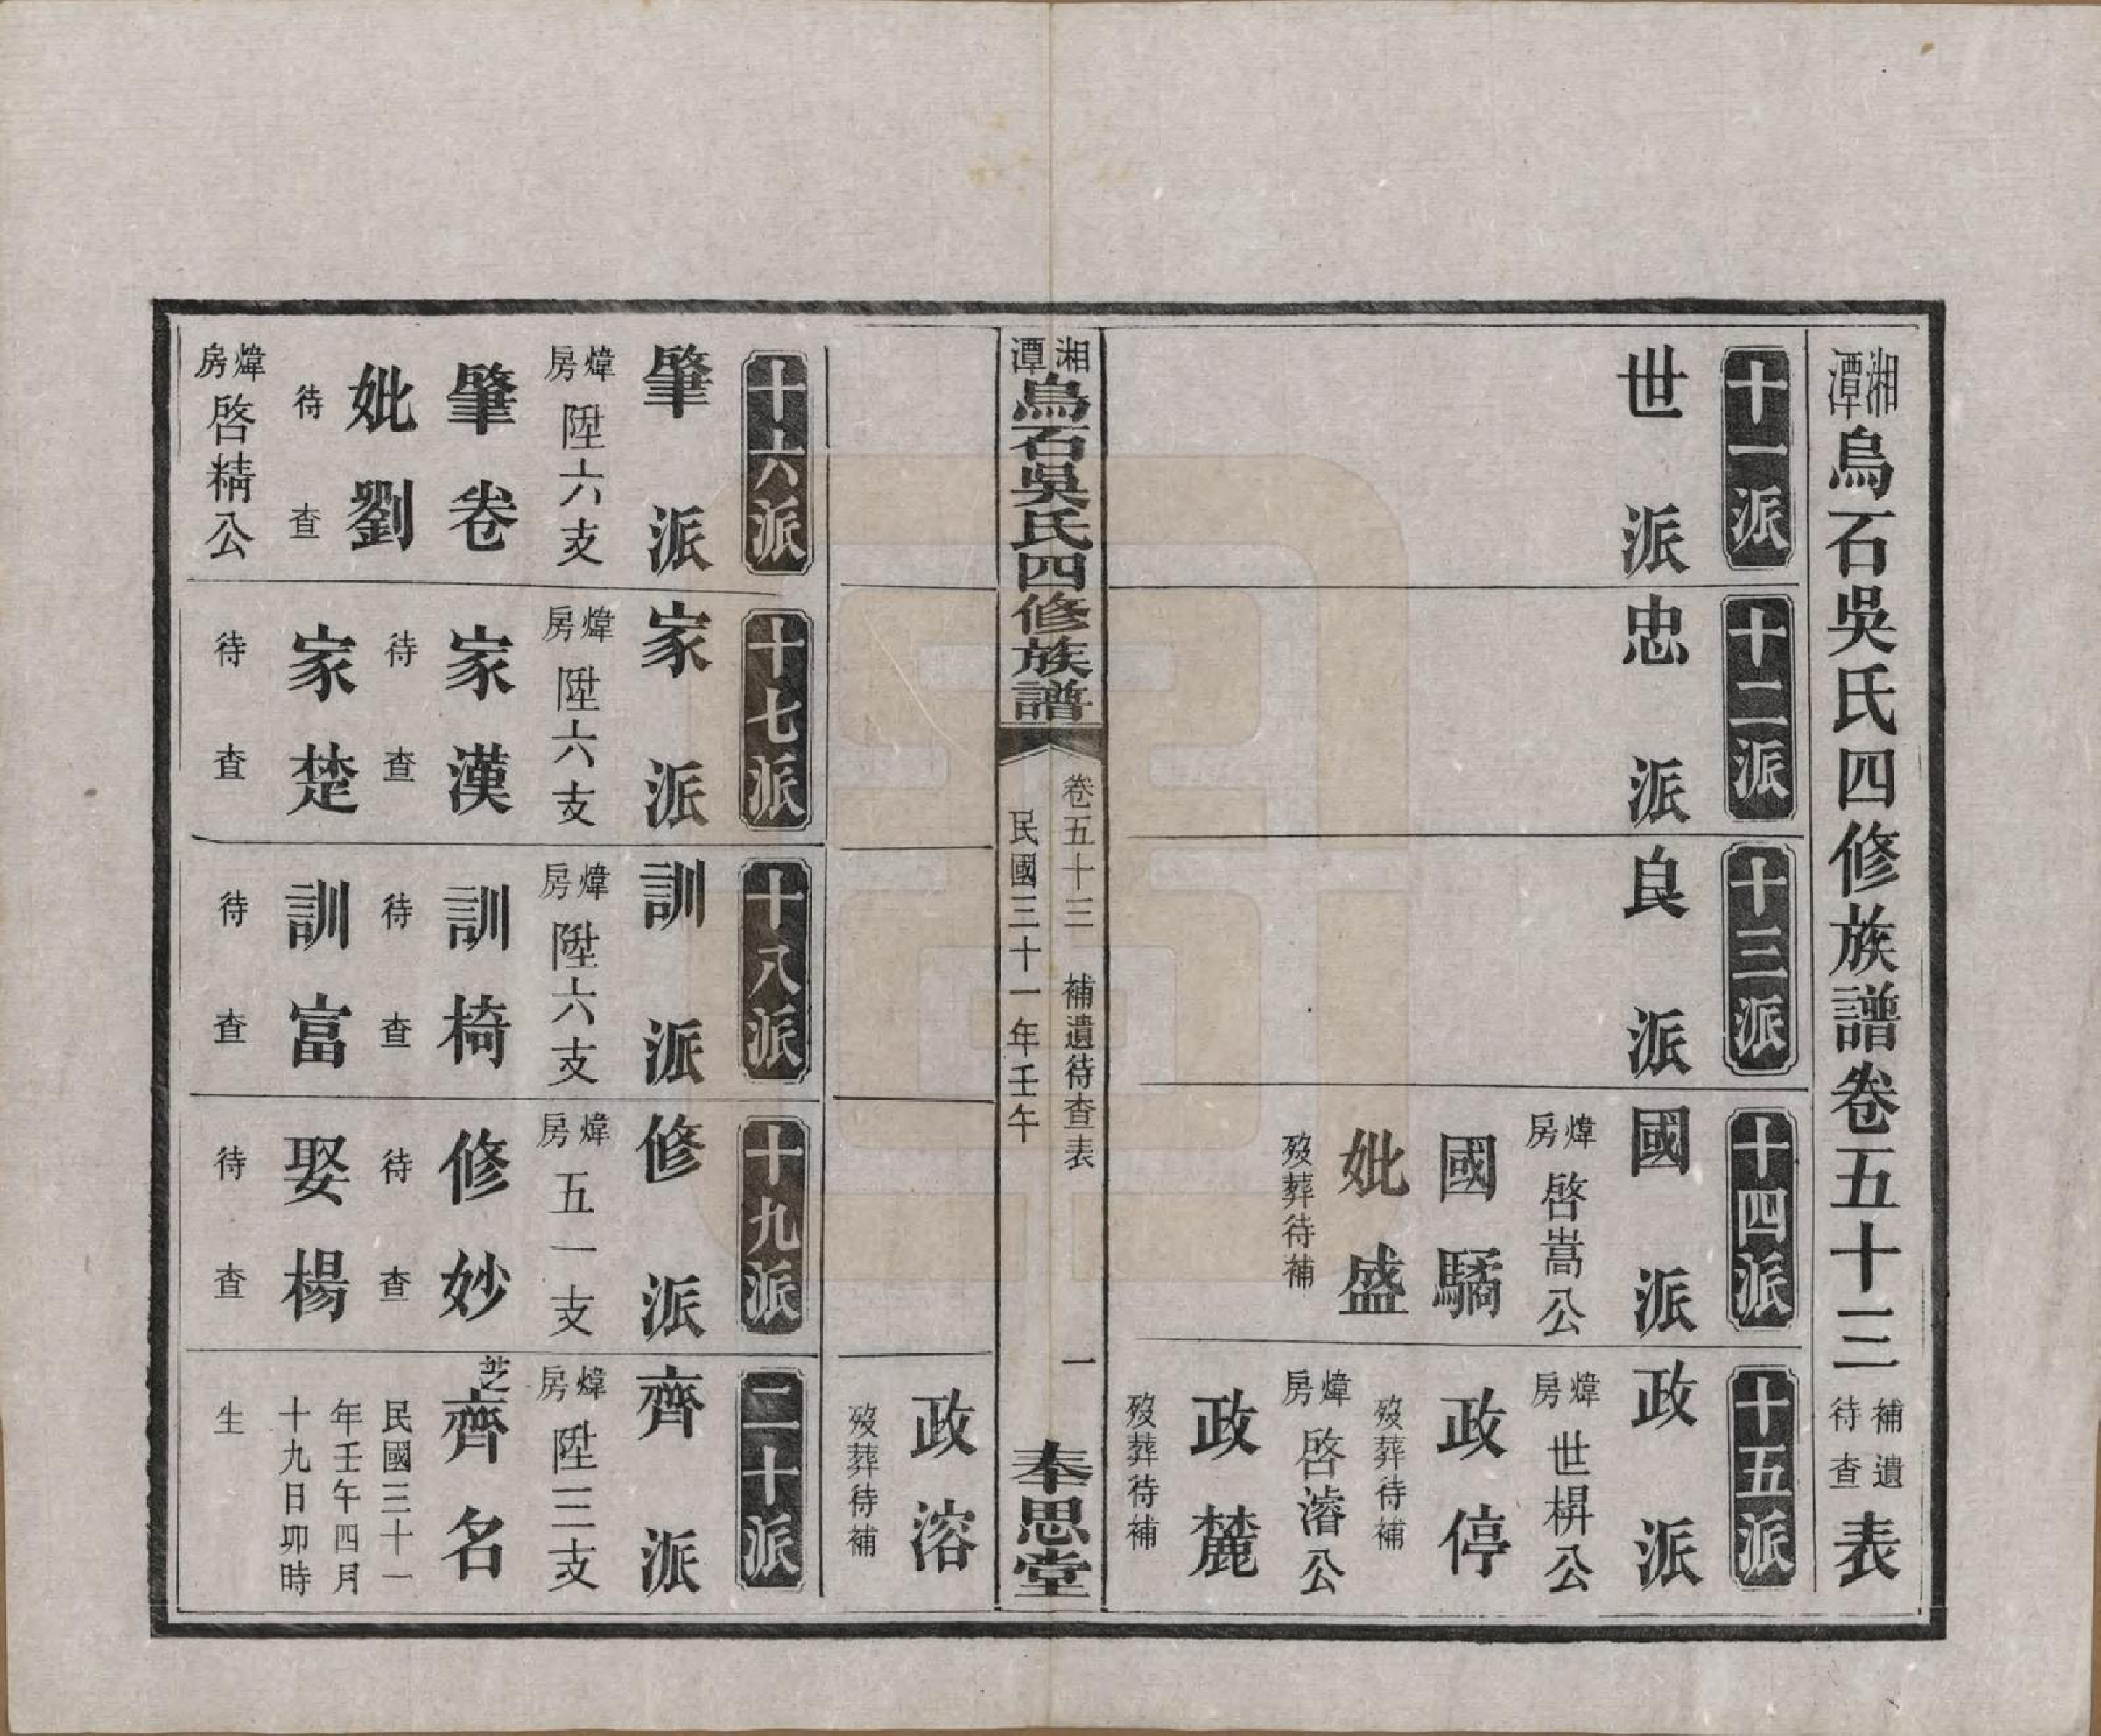 湘潭烏石吳氏四修族譜卷五十三補遺待查表
十一派
世派
十二派
忠派
十三派
良派
十四派
國派
煒房啓嵩公
國驕
妣盛
歿葬待補
十五派
政派
煒房世枡公
政停
歿葬待補
煒房啓濬公
政麓
歿葬待補
湘潭烏石吳氏四修族譜
卷五十三 補遺待查表 一
民國三十一年壬午
奉思堂
政溶
歿葬待補
十六派
肇派
煒房陞六支
肇卷
妣劉
待查
煒房啓精公
十七派
家派
煒房陞六支
家漢
待查
家楚
待查
十八派
訓派
煒房陞六支
訓椅
待查
訓富
待查
十九派
修派
煒房五一支
修妙
待查
娶楊
待查
二十派
齊派
煒房陞三支
芝齊名
民國三十一
年壬午四月
十九日卯時
生